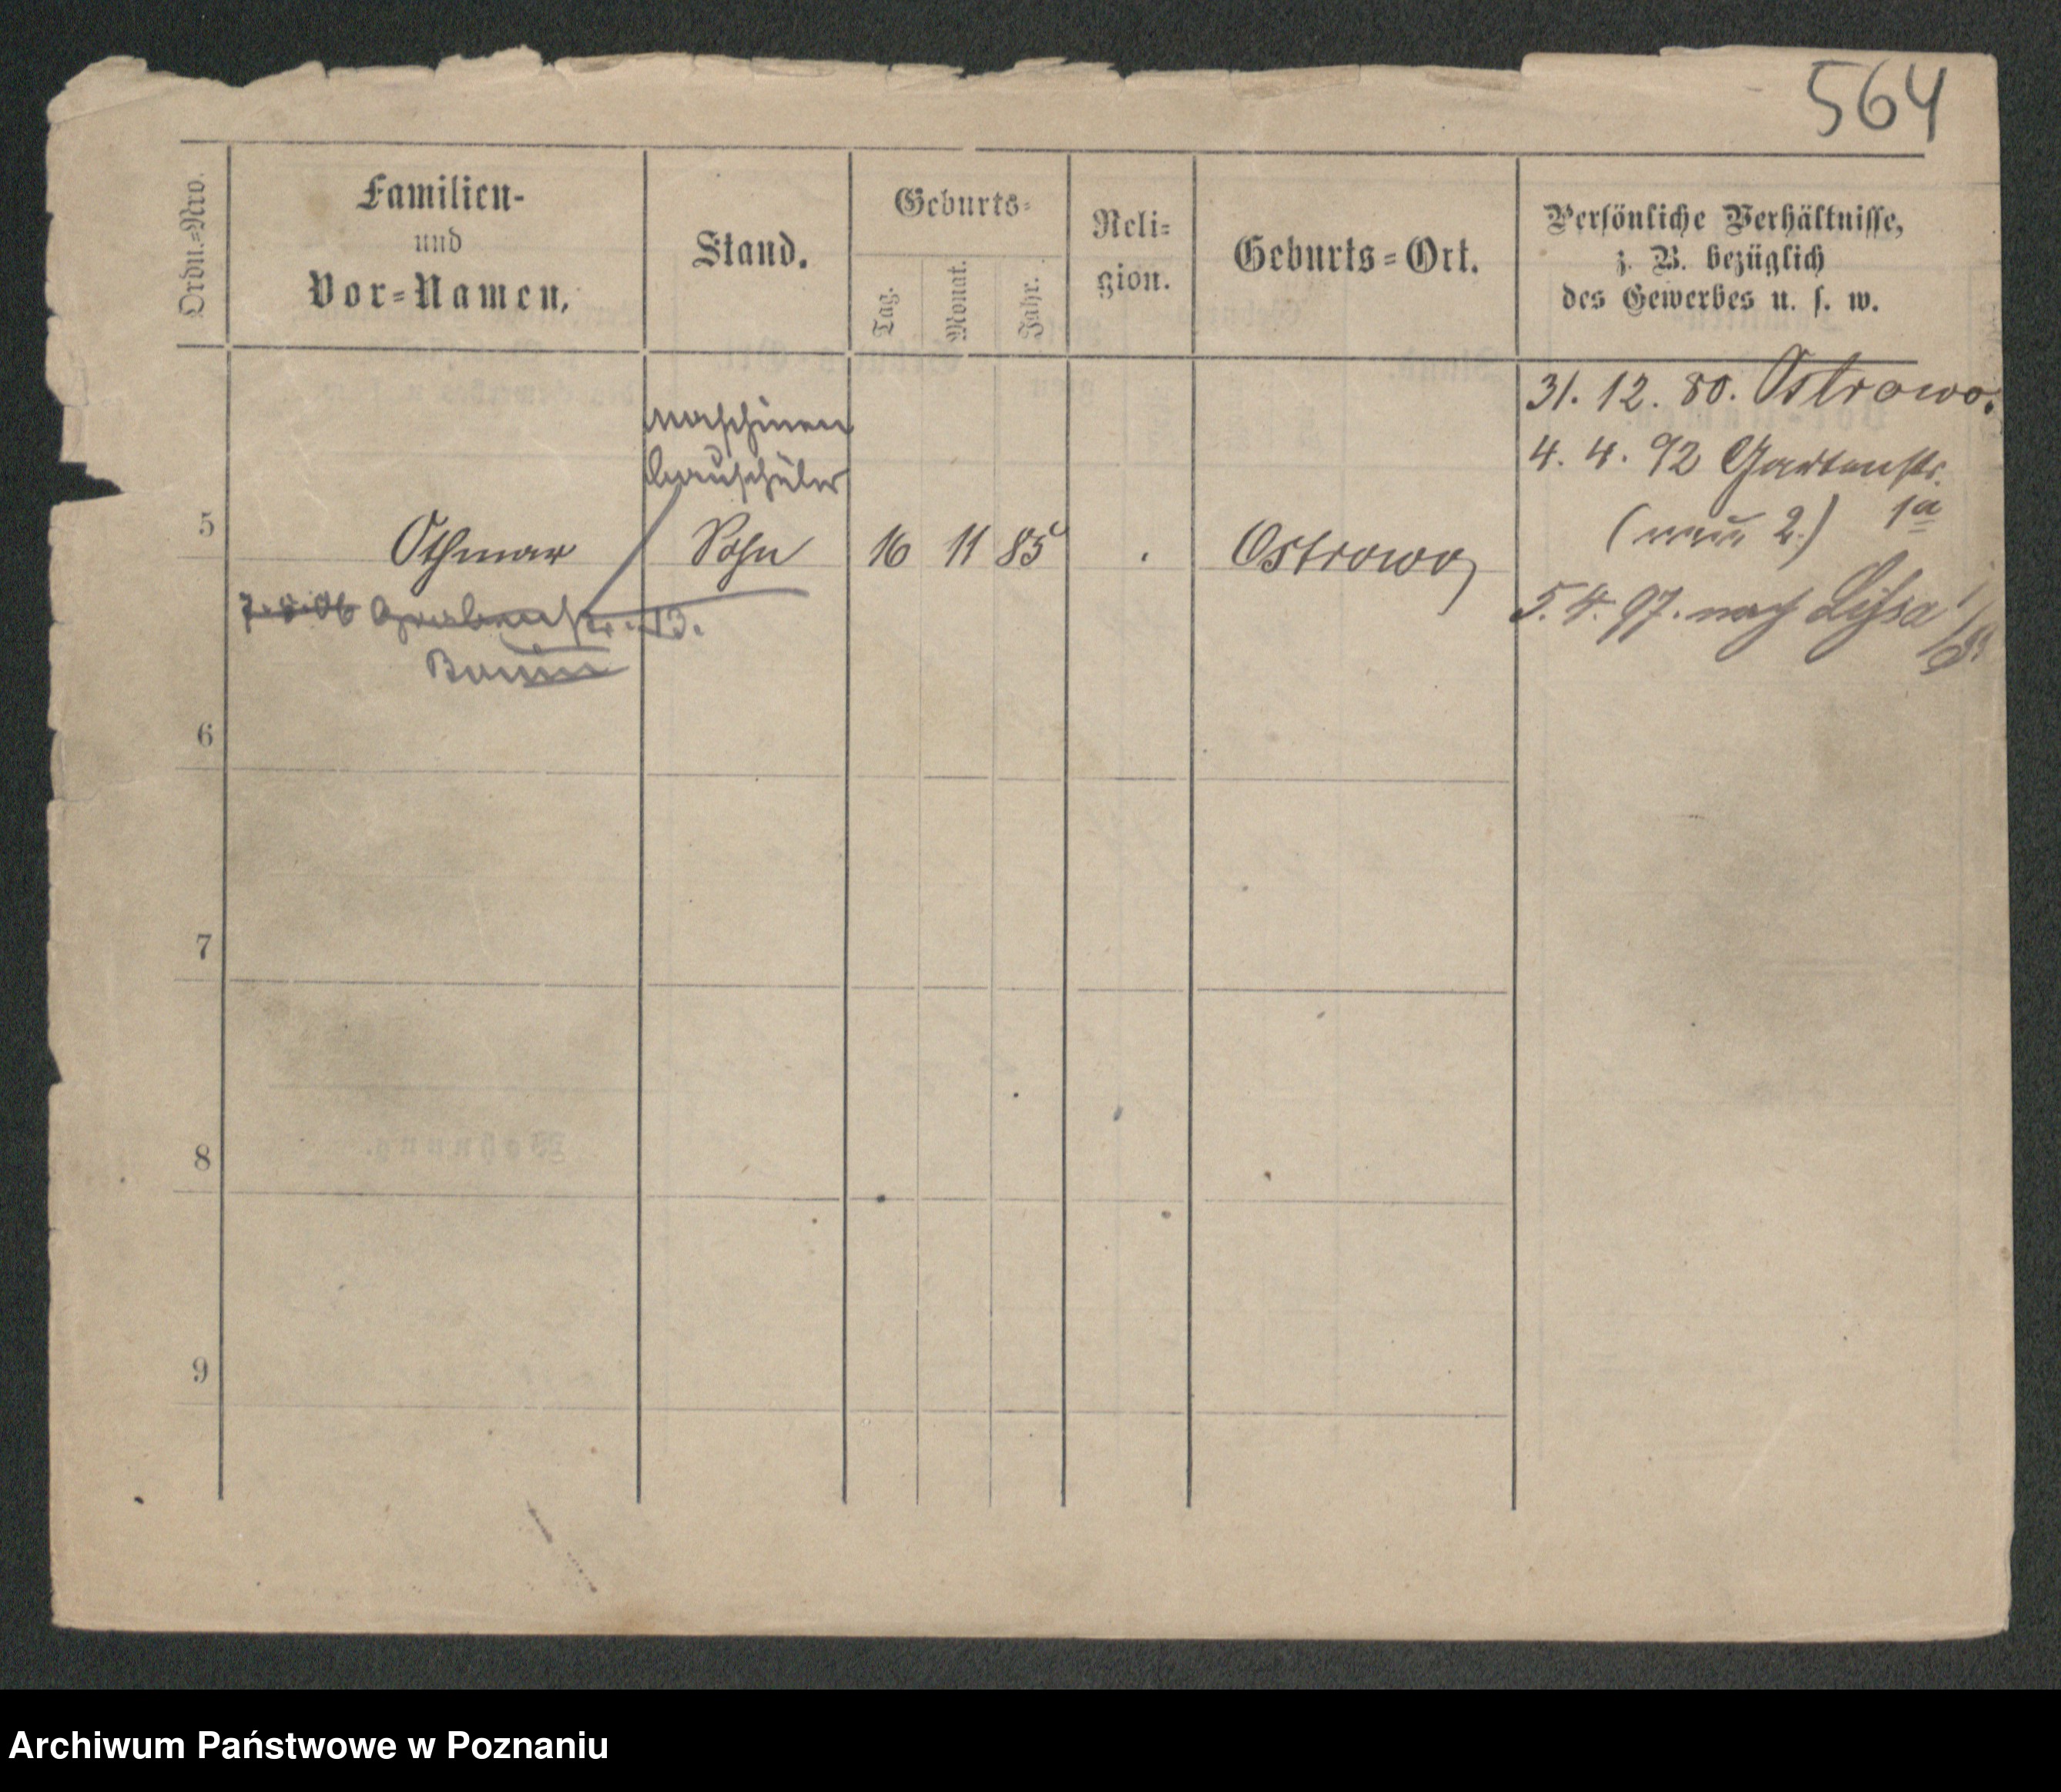 564
Ordn.=Nro.
Familien-
und
Vor=Namen.
Stand.
Geburts=
Tag.
Monat.
Jahr.
Reli=
gion.
Geburts=Ort.
Persönliche Verhältnisse,
z. B. bezüglich
des Gewerbes u. s. w.
31. 12. 80. Ostrowo.
Maschinen
bauschüler
4. 4. 92 Gartenstr.
1a
(neue 2.)
5
Othmar
Sohn
16 11 85
Ostrowo
5. 4. 97. nach Lissa
13.
6
7
8
9
Archiwum Państwowe w Poznaniu